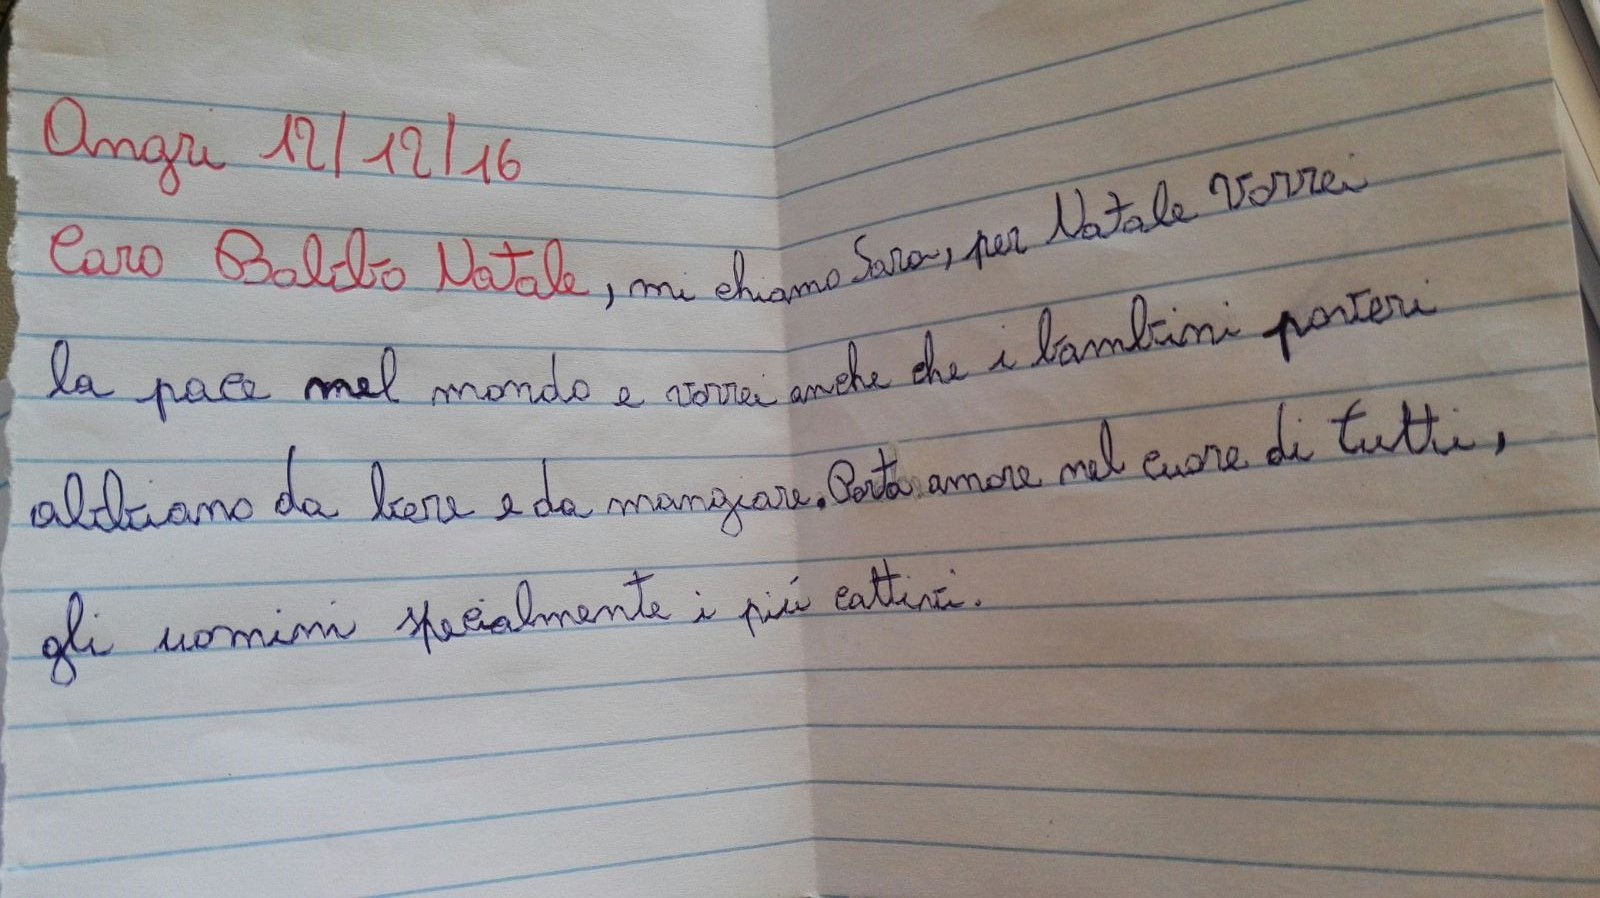 Angri 12/12/16
Caro Babbo Natale, mi chiamo Sara, per Natale Vorrei
la pace nel mondo e vorrei anche che i bambini poveri
abbiano da bere e da mangiare. Porta amore nel cuore di tutti,
gli uomini specialmente i più cattivi.